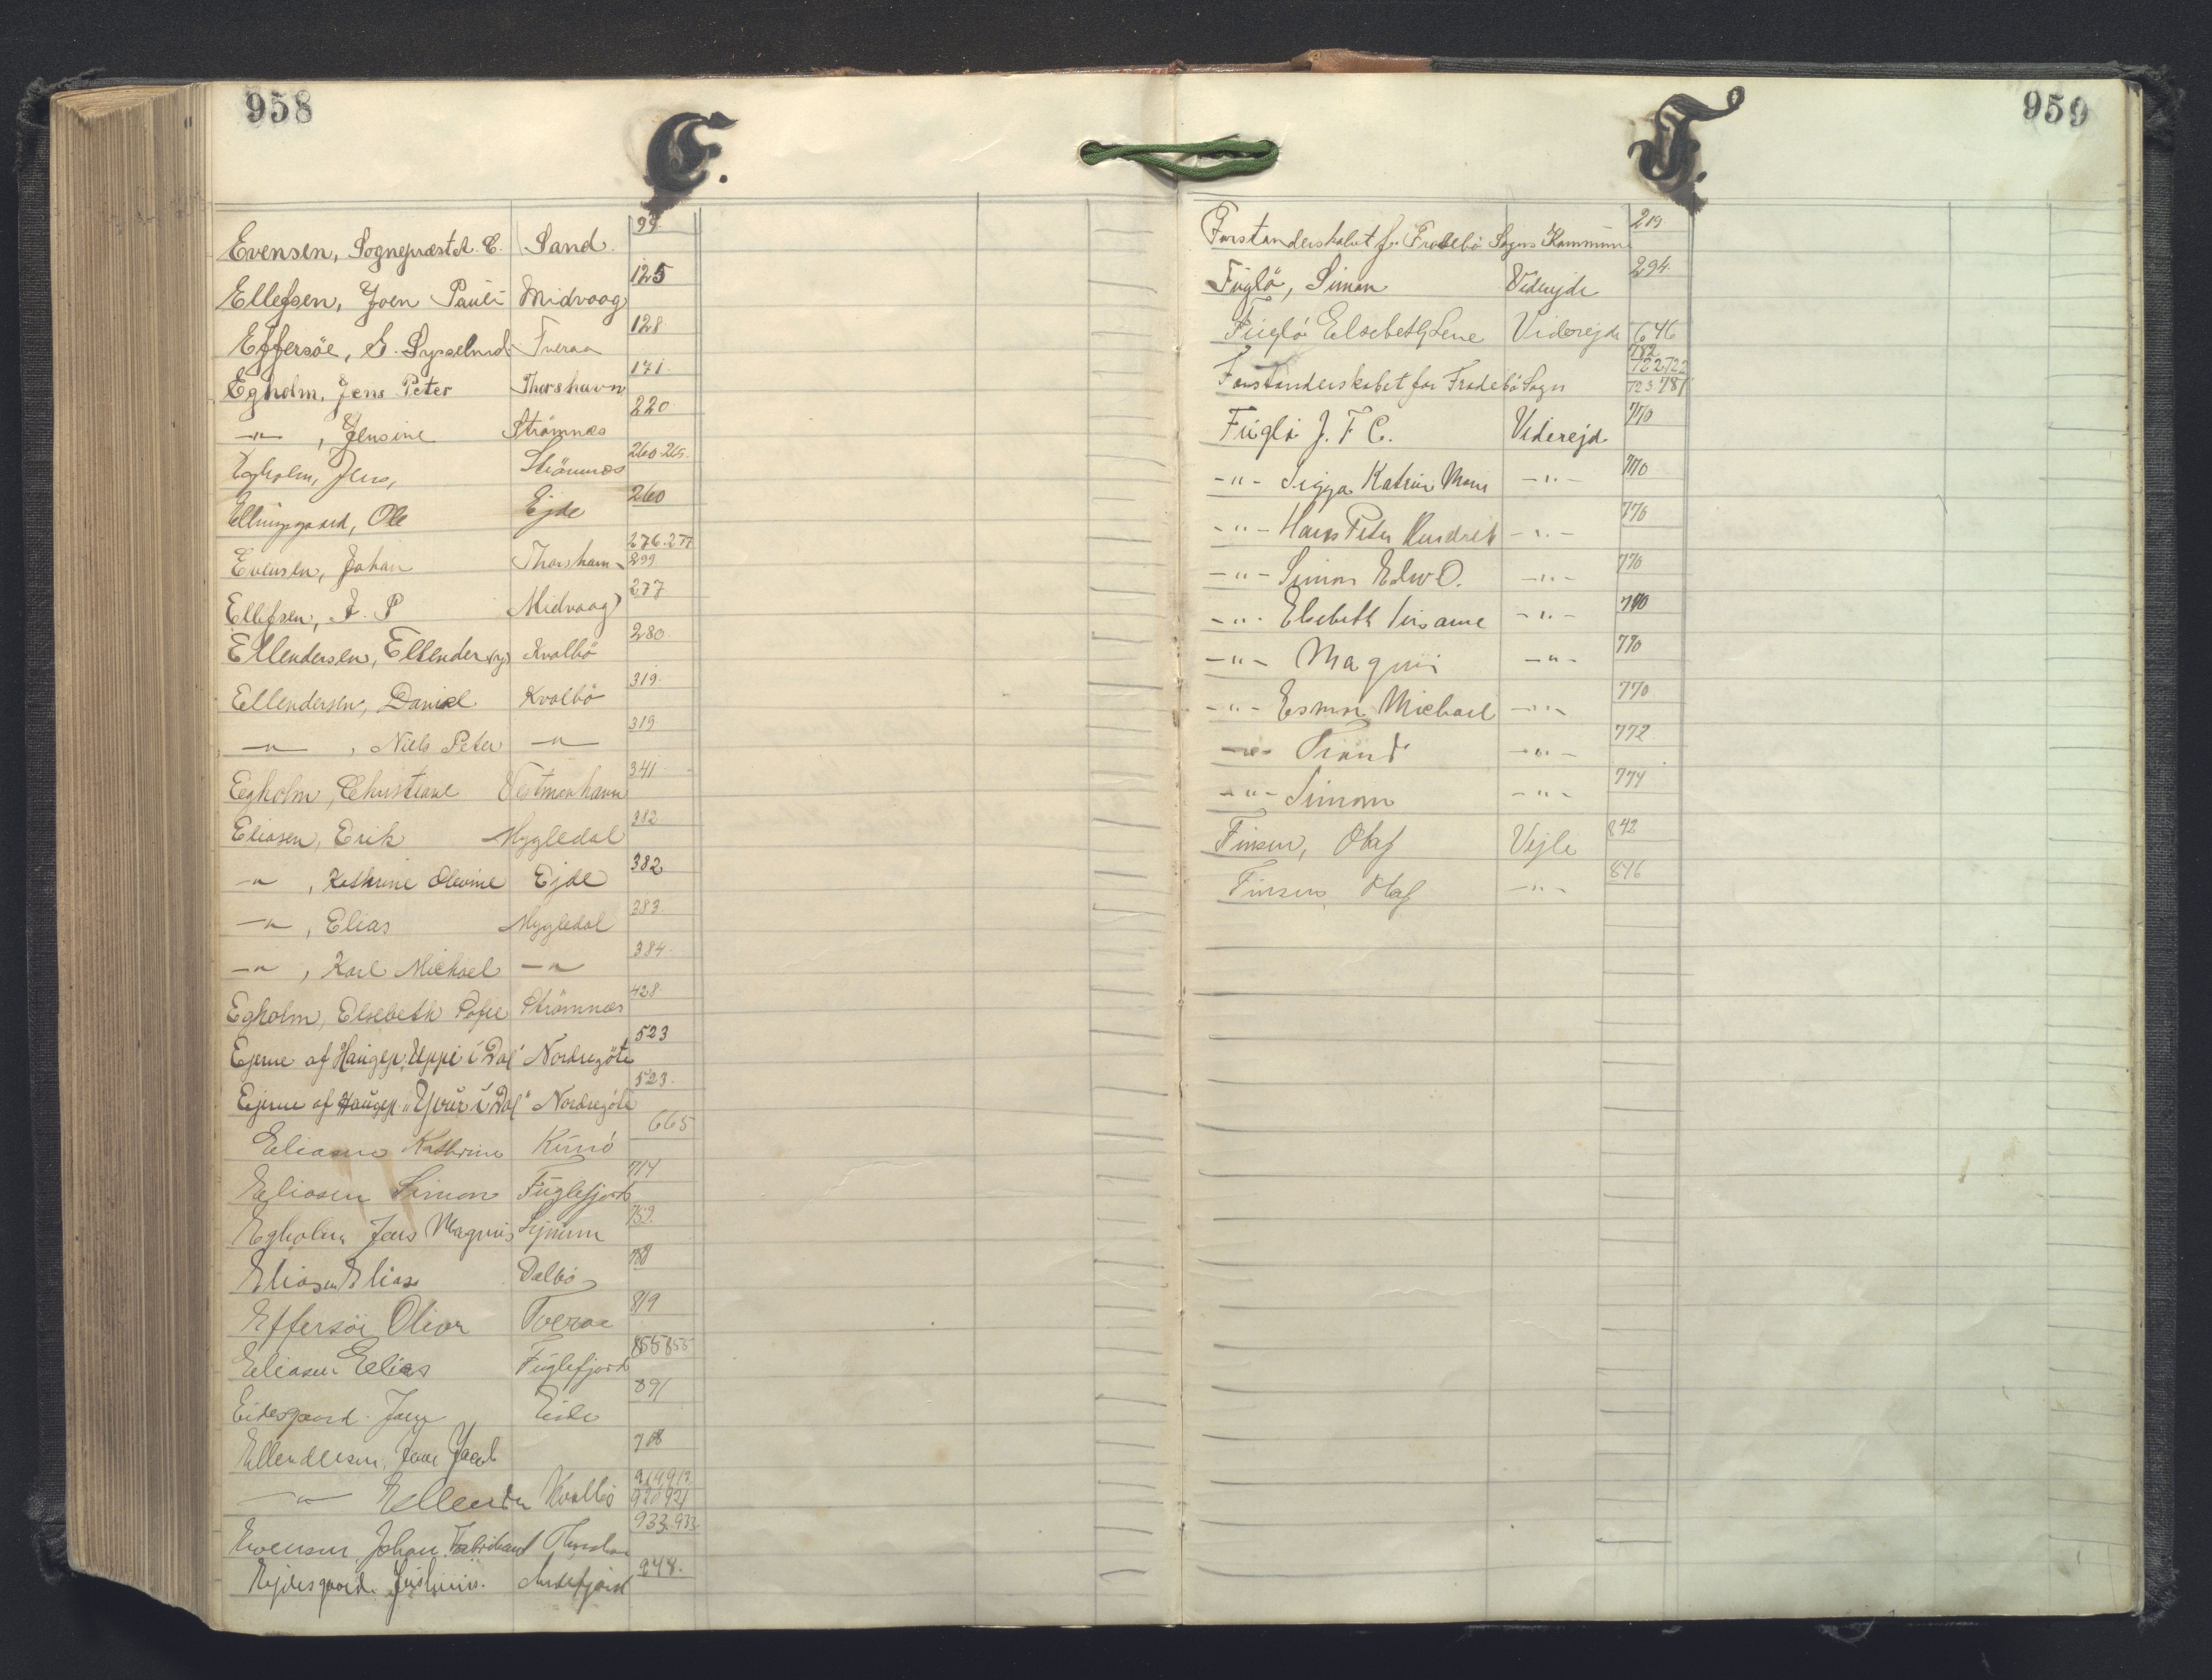 958
E.
Evensen, Sognepræst A. E. Sand. 99.
Ellefsen, Joen Pauli Midvaag 125
Effersöe, G. Sysselmd. Tveraa 128
Egholm, Jens Peter Thorshavn 171.
-"- , Jensine Strömnæs 220.
Egholm, Jens, Strömnæs 260.265.
Ellingsgaard, Ole Ejde 260
Evensen, Johan Thorshavn 276.277 299
Ellefsen, J. P Midvaag 277
Ellendersen, Ellender Kvalbö 280.
Ellendersen, Daniel Kvalbö 319.
-"- , Niels Peter -"- 319
Egholm, Christiane Vestmanhavn 341
Eliasen, Erik Myggledal 382
-"- , Kathrine Olevine Ejde 382
-"- , Elias Myggledal 383.
-"- , Karl Michael -"- 384.
Egholm, Elsebeth Sofie Strömnæs 428.
Ejerne af Haugen "Uppi i Dal" Nordregöte 523
Ejerne af Haugen "Yvur i Dal" Nordregöte 523.
Eliasen Kathrine Kunö 665
Eliasen Simon Fuglefjord 714
Egholm Jens Magnus 752.
Eliasen Elias Dalbö
Effersöe Oliver Tveraa 819
Eliasen Elias Fuglefjord 855 855
Eidesgaard Eide 891
Ellendersen, Jacob
-"- Ellender Kvalbö 914 920 921
Evensen, Johan Fabrikant 933.933
Ejdesgaard 948.
959
F.
Forstanderskabet f. Frodebö Sogns Kommune 219
Fuglö, Simon Viderejde 294.
Fuglö Elsebeth Lene Viderejde 646
Forstanderskabet for Frodebö Sogn 782 722 722 723 781
Fuglö J. F C. Viderejd 770
-"- Sigga Katrine Marie -"- 770
-"- Hans Peter Hendrik -"- 770
-"- Simon Edw O. -"- 770
-"- Elsebeth Susanne -"- 770
-"- Magnus -"- 770
-"- Michael -"- 770
-"- Trond -"- 772.
-"- Simon -"- 774
Finsen, Olaf Vejle 842
Finsen, Olaf -"- 846